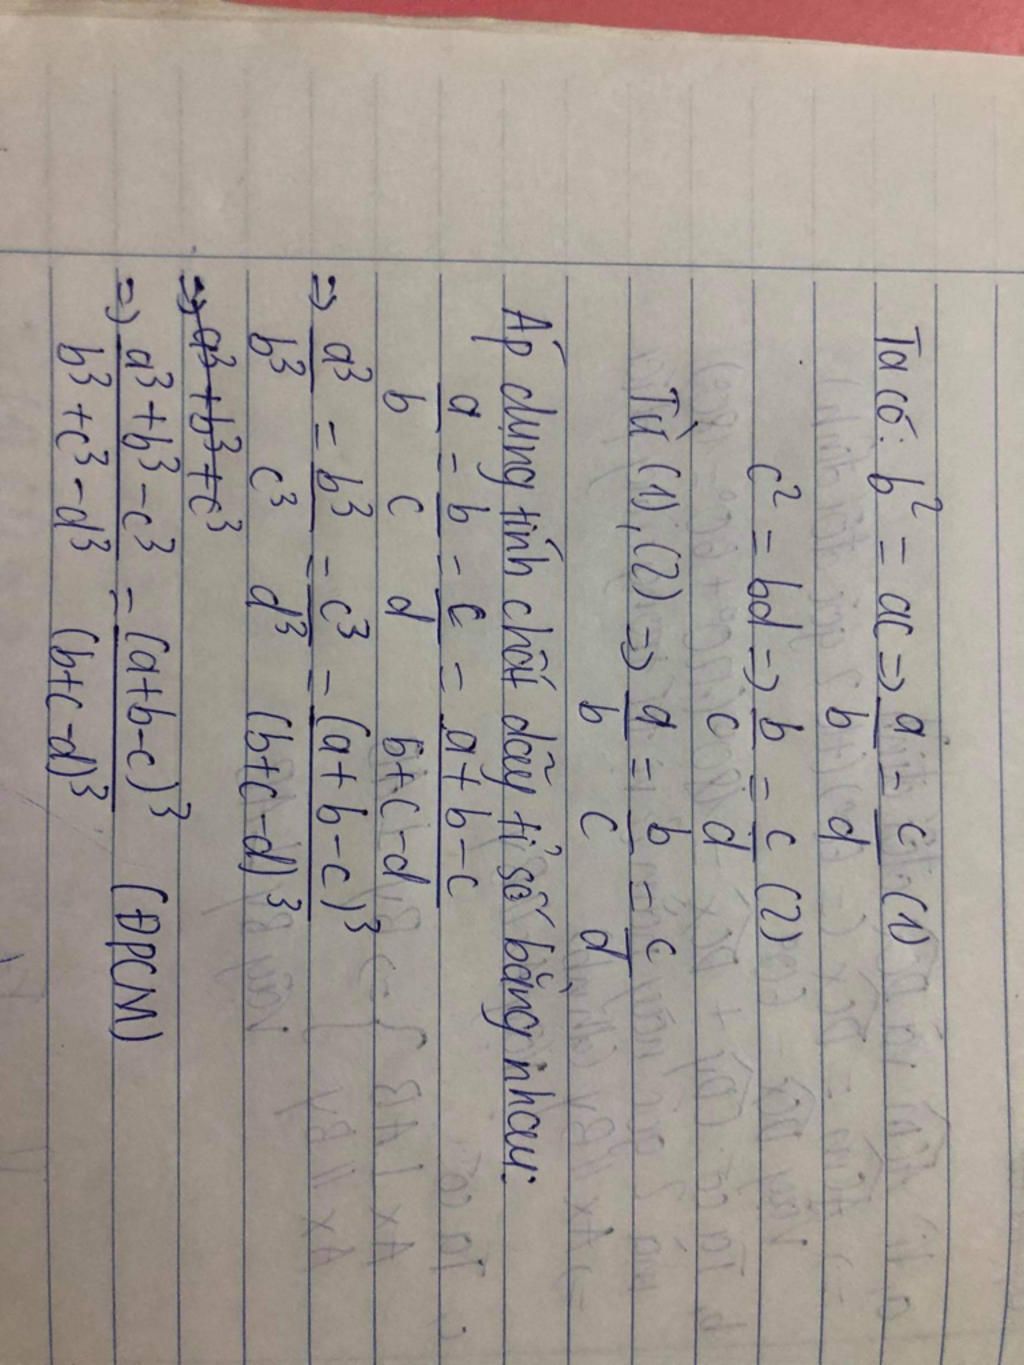 Ta có: b² = ac => a/b = c/d (1)
c² = bd => b/c = c/d (2)
Từ (1), (2) => a/b = b/c = c/d
Áp dụng tính chất dãy tỉ số bằng nhau:
a/b = b/c = c/d = a+b-c/b+c-d
=> a³/b³ = b³/c³ = c³/d³ = (a+b-c)³/(b+c-d)³
=> a³+b³+c³
=> a³+b³-c³/b³+c³-d³ = (a+b-c)³/(b+c-d)³ (ĐPCM)